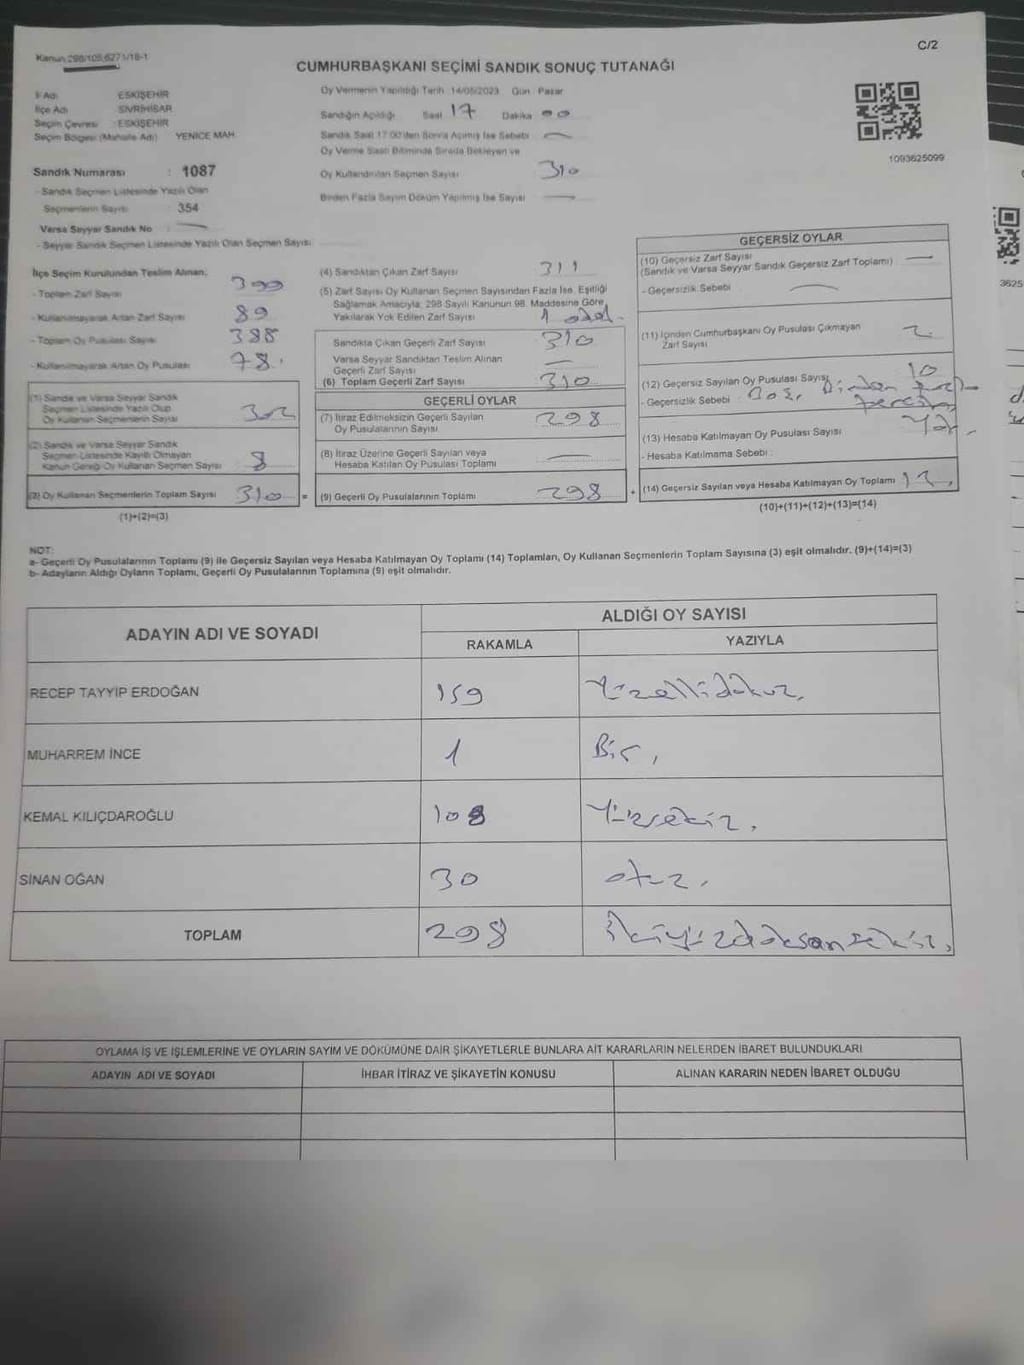 Kanun 298/105,6271/18-1
C/2
CUMHURBAŞKANI SEÇİMİ SANDIK SONUÇ TUTANAĞI
İl Adı ESKİŞEHİR
İlçe Adı SİVRİHİSAR
Seçim Çevresi : ESKİŞEHİR
Seçim Bölgesi (Mahalle Adı) YENİCE MAH.
Sandık Numarası : 1087
- Sandık Seçmen Listesinde Yazılı Olan
Seçmenlerin Sayısı : 354
Varsa Seyyar Sandık No :
- Seyyar Sandık Seçmen Listesinde Yazılı Olan Seçmen Sayısı
Oy Vermenin Yapıldığı Tarih 14/05/2023 Gün Pazar
Sandığın Açıldığı Saat 17 Dakika 00
Sandık Saat 17:00'den Sonra Açılmış İse Sebebi
Oy Verme Saati Bitiminde Sırada Bekleyen ve
Oy Kullandırılan Seçmen Sayısı 310
Birden Fazla Sayım Döküm Yapılmış İse Sayısı
1093625099
3625
İlçe Seçim Kurulundan Teslim Alınan;
- Toplam Zarf Sayısı 399
- Kullanılmayarak Artan Zarf Sayısı 89
- Toplam Oy Pusulası Sayısı 388
- Kullanılmayarak Artan Oy Pusulası 78
(1) Sandık ve Varsa Seyyar Sandık
Seçmen Listesinde Yazılı Olup
Oy Kullanan Seçmenlerin Sayısı 302
(2) Sandık ve Varsa Seyyar Sandık
Seçmen Listesinde Kayıtlı Olmayan
Kanun Gereği Oy Kullanan Seçmen Sayısı 8
(3) Oy Kullanan Seçmenlerin Toplam Sayısı 310 =
(1)+(2)=(3)
(4) Sandıktan Çıkan Zarf Sayısı 311
(5) Zarf Sayısı Oy Kullanan Seçmen Sayısından Fazla İse, Eşitliği
Sağlamak Amacıyla; 298 Sayılı Kanunun 98. Maddesine Göre
Yakılarak Yok Edilen Zarf Sayısı 1 adet.
Sandıkta Çıkan Geçerli Zarf Sayısı 310
Varsa Seyyar Sandıktan Teslim Alınan
Geçerli Zarf Sayısı
(6) Toplam Geçerli Zarf Sayısı 310
GEÇERLİ OYLAR
(7) İtiraz Edilmeksizin Geçerli Sayılan
Oy Pusulalarının Sayısı 298
(8) İtiraz Üzerine Geçerli Sayılan veya
Hesaba Katılan Oy Pusulası Toplamı
(9) Geçerli Oy Pusulalarının Toplamı 298 +
GEÇERSİZ OYLAR
(10) Geçersiz Zarf Sayısı
(Sandık ve Varsa Seyyar Sandık Geçersiz Zarf Toplamı)
- Geçersizlik Sebebi
(11) İçinden Cumhurbaşkanı Oy Pusulası Çıkmayan
Zarf Sayısı 2
(12) Geçersiz Sayılan Oy Pusulası Sayısı 10
- Geçersizlik Sebebi : Boş, Birden fazla
(13) Hesaba Katılmayan Oy Pusulası Sayısı
- Hesaba Katılmama Sebebi :
(14) Geçersiz Sayılan veya Hesaba Katılmayan Oy Toplamı 12
(10)+(11)+(12)+(13)=(14)
NOT:
a- Geçerli Oy Pusulalarının Toplamı (9) ile Geçersiz Sayılan veya Hesaba Katılmayan Oy Toplamı (14) Toplamları, Oy Kullanan Seçmenlerin Toplam Sayısına (3) eşit olmalıdır. (9)+(14)=(3)
b- Adayların Aldığı Oyların Toplamı, Geçerli Oy Pusulalarının Toplamına (9) eşit olmalıdır.
ADAYIN ADI VE SOYADI
ALDIĞI OY SAYISI
RAKAMLA YAZIYLA
RECEP TAYYİP ERDOĞAN 159 Yüzellidokuz.
MUHARREM İNCE 1 Bir,
KEMAL KILIÇDAROĞLU 108 Yüzsekiz.
SİNAN OĞAN 30 otuz.
TOPLAM 298 İkiyüzdoksansekiz,
OYLAMA İŞ VE İŞLEMLERİNE VE OYLARIN SAYIM VE DÖKÜMÜNE DAİR ŞİKAYETLERLE BUNLARA AİT KARARLARIN NELERDEN İBARET BULUNDUKLARI
ADAYIN ADI VE SOYADI İHBAR İTİRAZ VE ŞİKAYETİN KONUSU ALINAN KARARIN NEDEN İBARET OLDUĞU